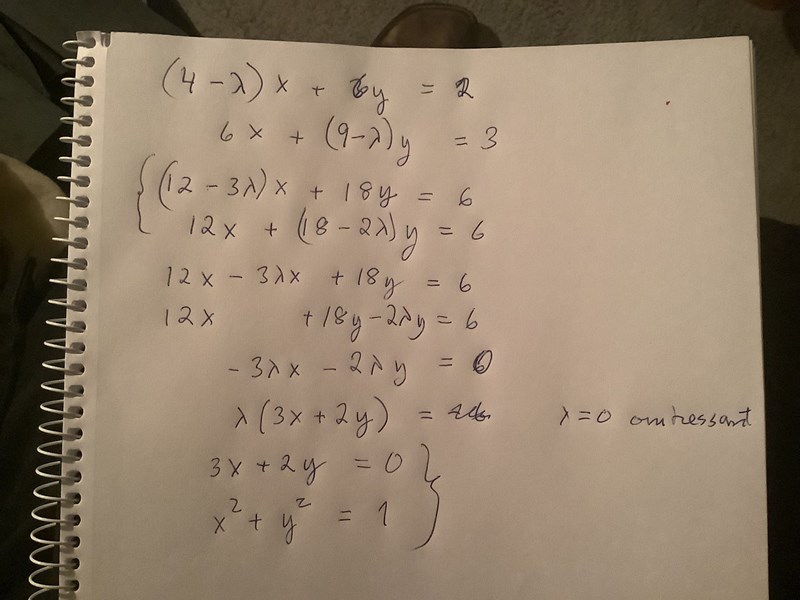 (4 - λ) x + 6y = 2
6 x + (9-λ)y = 3
{(12 - 3λ)x + 18y = 6
12x + (18 - 2λ)y = 6
12x - 3λx + 18y = 6
12x + 18y - 2λy = 6
- 3λx - 2λy = 0
λ(3x + 2y) = λ=0
3x + 2y = 0 }
x² + y² = 1